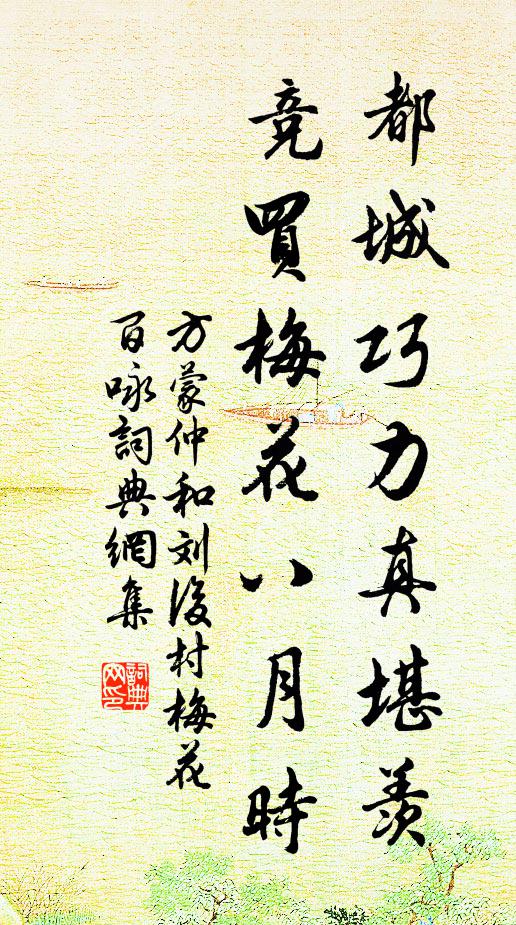 都城巧力真堪羨
竞買梅花八月時
方蒙仲和刘後村梅花
百咏詞典網集
詞典網印